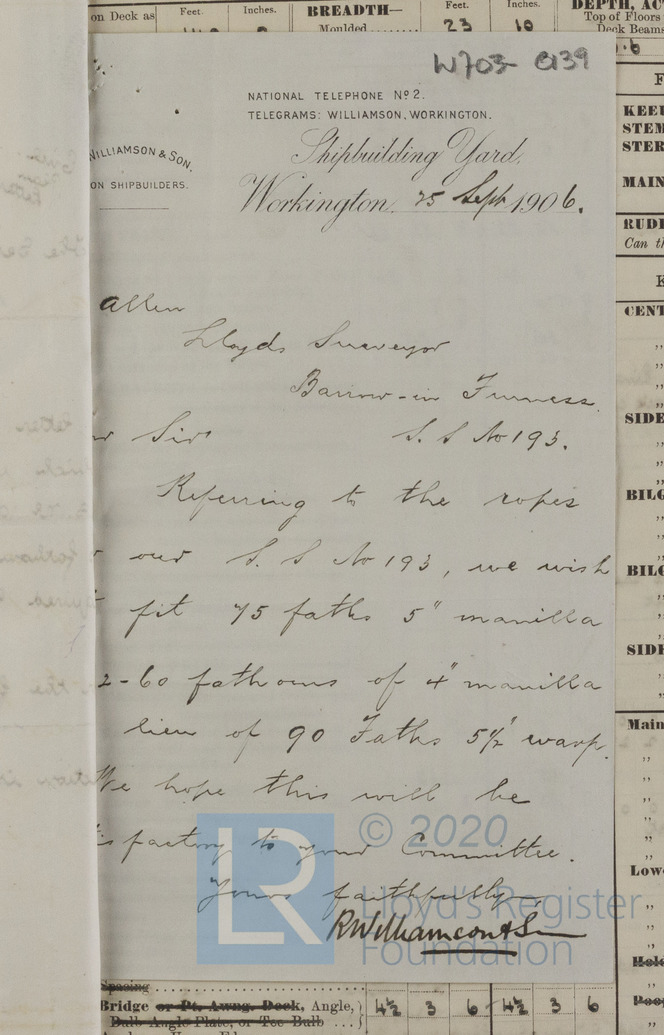 on Deck as
Feet.
Inches.
BREADTH—
Moulded
Feet.
23
Inches.
10
DEPTH,
Top of Floors
Deck Beams
W703- 0139
NATIONAL TELEPHONE Nº 2.
TELEGRAMS: WILLIAMSON, WORKINGTON.
WILLIAMSON & SON,
ON SHIPBUILDERS.
Shipbuilding Yard,
Workington, 25 Sept 1906.
Allen
Lloyds Surveyor
Barrow-in Furness.
Sir
S. S No 193.
Referring to the ropes
our S. S No 193, we wish
fit 75 faths 5" manilla
2-60 fathoms of 4" manilla
lieu of 90 Faths 5½" warp.
We hope this will be
sfactory to your Committee.
Yours faithfully,
R Williamson & Son
© 2020
LR
Lloyd's Register
Foundation
KEEL
STEM
STER
MAIN
RUDD
Can th
CENT
SIDE
BILG
BILG
SIDE
Main
Lowe
Hold
Spacing
Bridge or Pt. Awng. Deck, Angle,
Bulb Angle Plate, or Tee Bulb
4½ 3 6 4½ 3 6